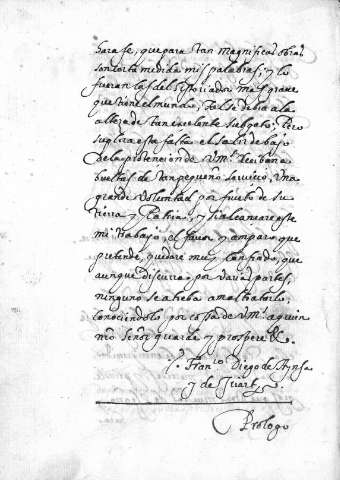 para fe, que para tan magnificas obras
son corta medida mis palabras; y lo
fueran las del historiador mas graue
que tiene el mundo, tal se debia a la
alteza de tan excelente subgeto; Pero
suplira esta falta el salir debajo
de la protection de Vm.
bueltas de tan pequeño seruicio, Vna
grande Voluntad por fruto de su
tierra y Patria, y si alcançare este
mi trabajo, el fauor y amparo que
pretende, quedare muy confiado, que
aunque discurra por varias partes,
ninguno se atreba a maltratarlo,
conociendolo por cosa de Vm. a quien
nro Señor guarde y prospere &.
Franco Diego de Aynsa
y de Yriarte.
Prologo